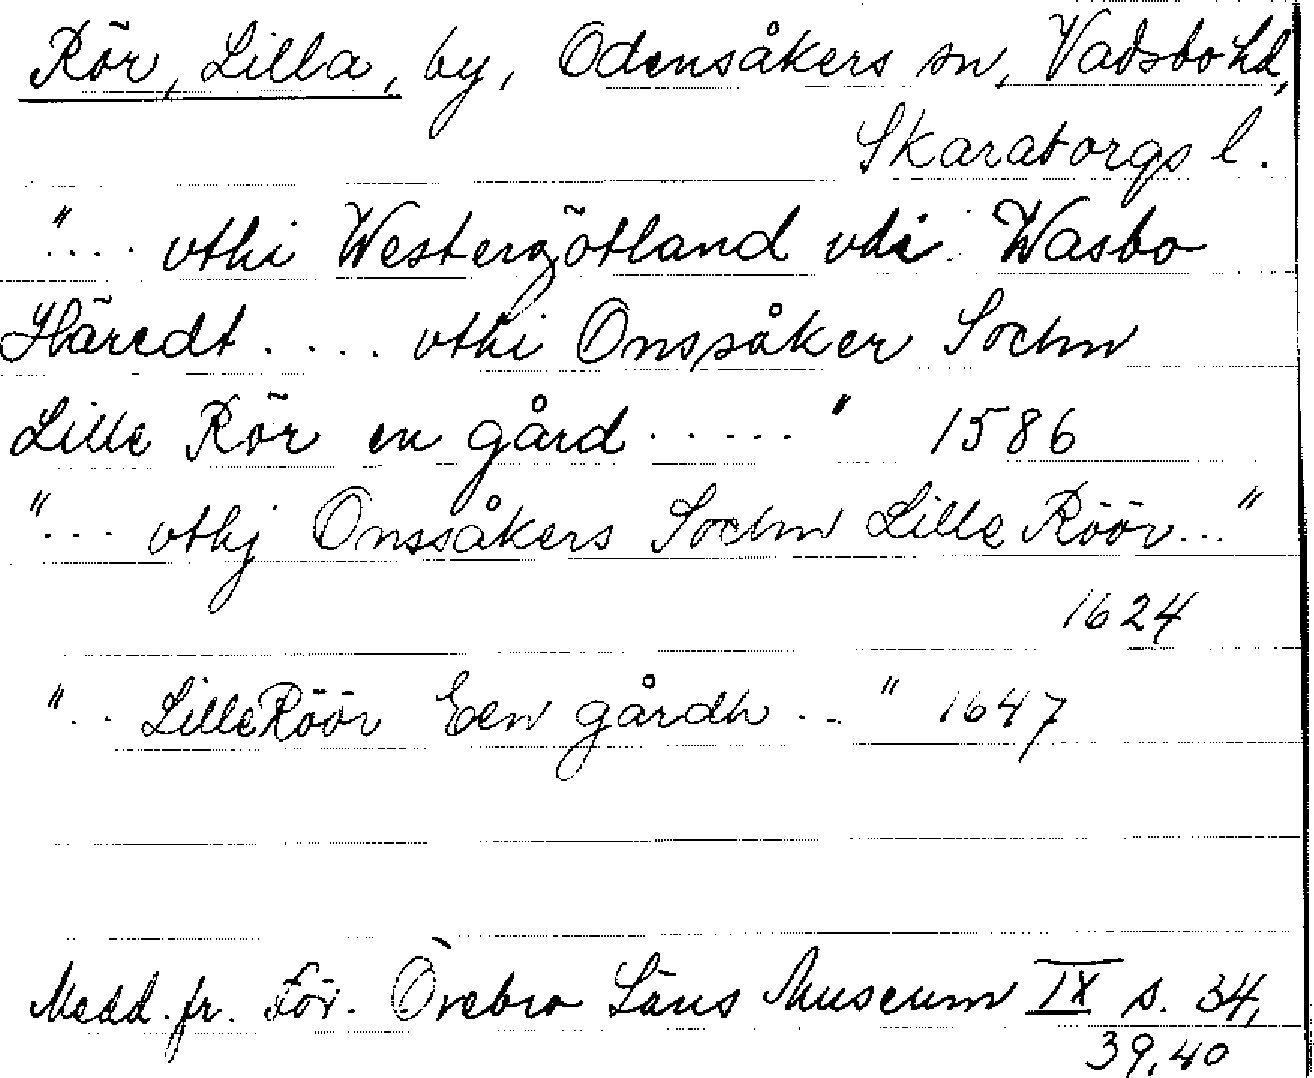 Rör, Lilla, by, Odensåkers sn, Vadsbo hd,
Skaraborgs l.
"... vthi Westergötland vdi Wasbo
Häredt .... vthi Onssåker Sochn
Lille Rör en gård ....." 1586
"... vthj Onssåkers Sochn Lille Röör..."
1624
".. Lille Röör Een gårdh .." 1647
Medd. fr. För. Örebro Läns Museum IX s. 34,
39, 40